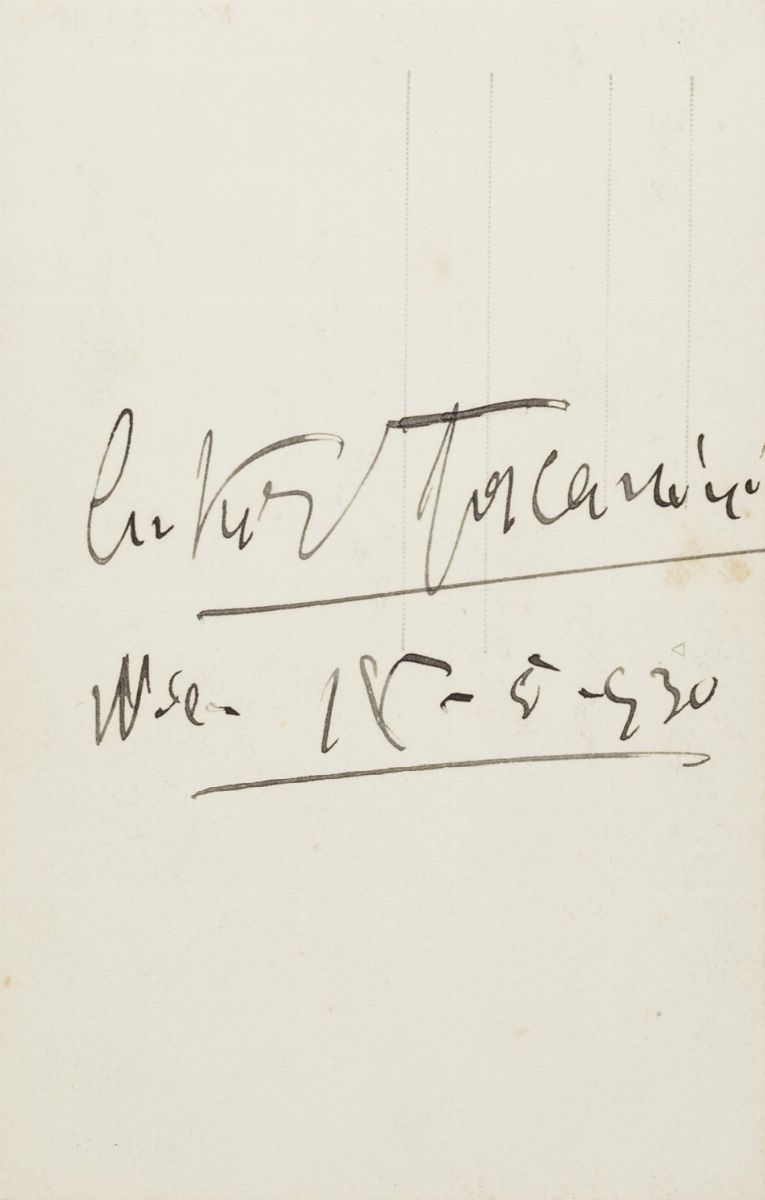 Arturo Toscanini
IX - 5 - 930